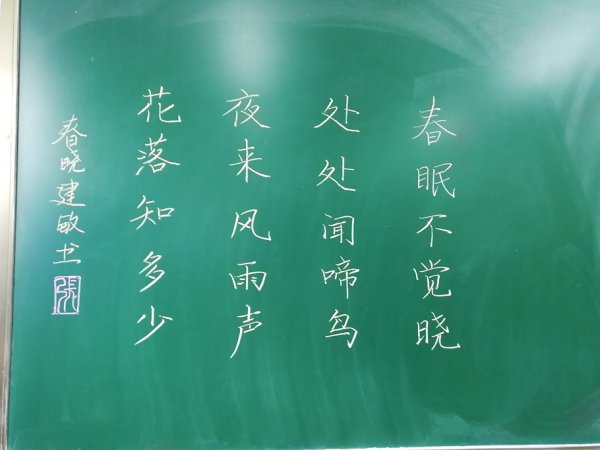 春眠不觉晓
处处闻啼鸟
夜来风雨声
花落知多少
春晓建敏书
張